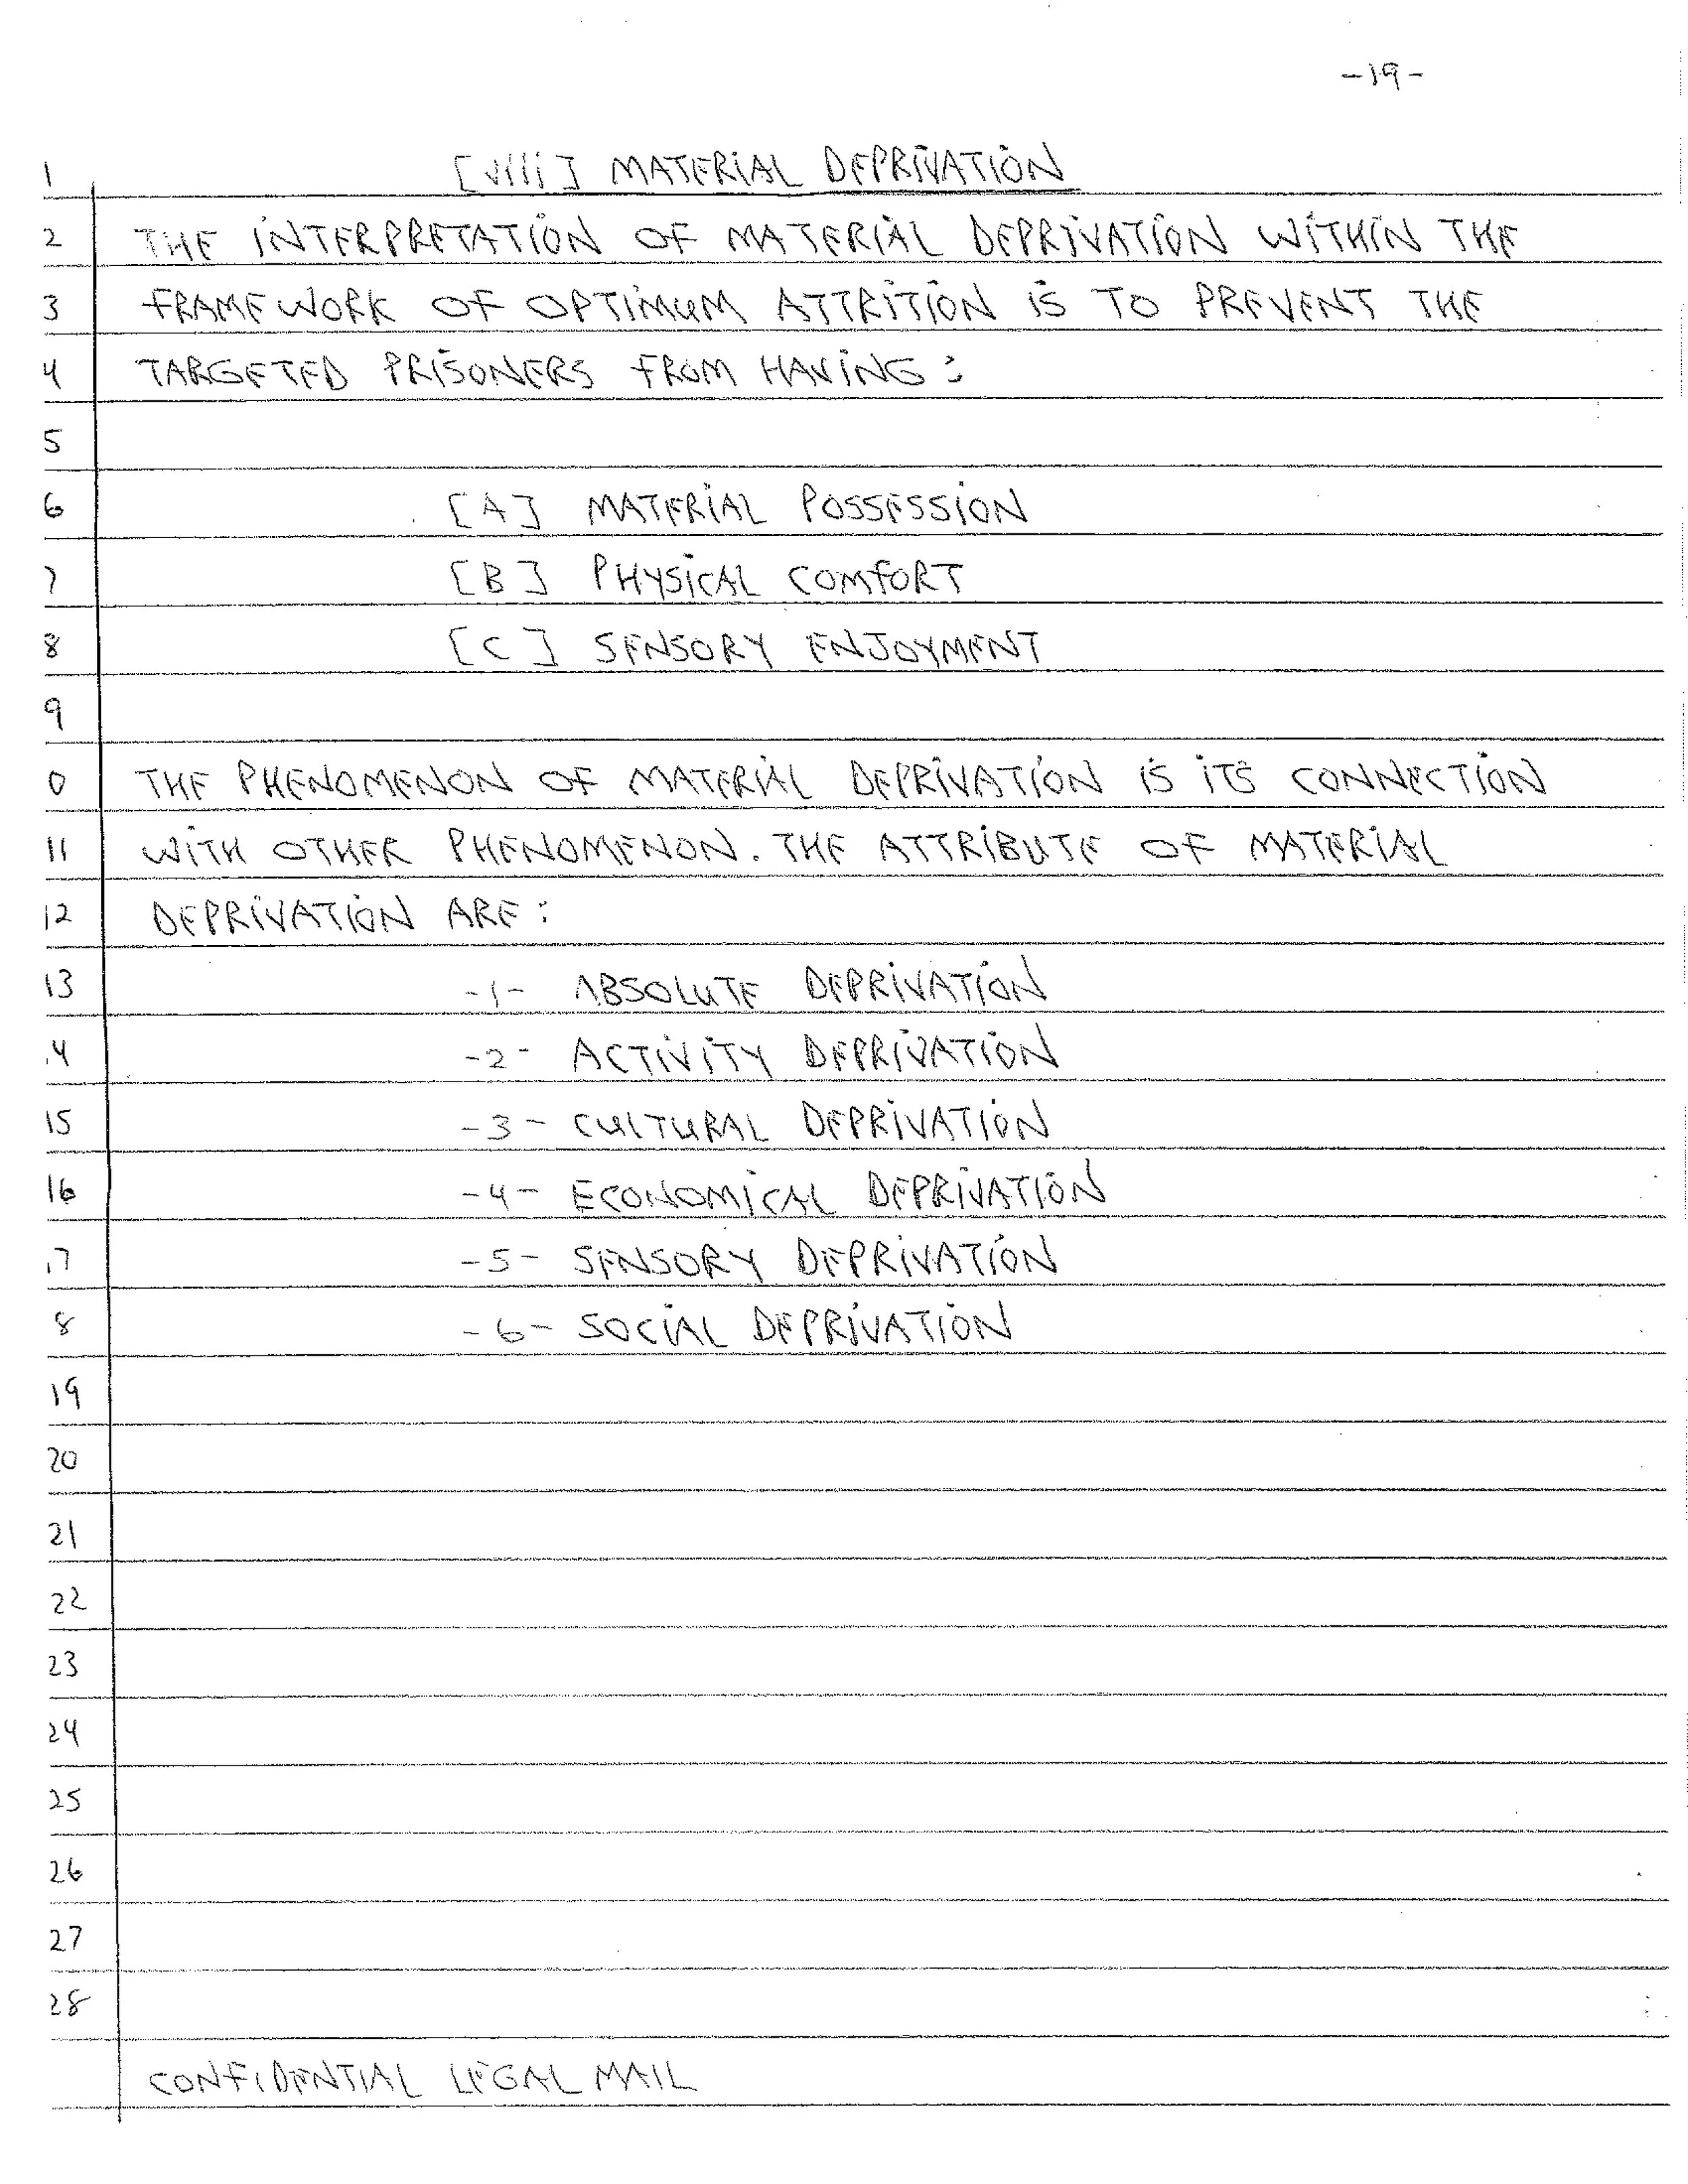 -19-
1 [viii] MATERIAL DEPRIVATION
2 THE INTERPRETATION OF MATERIAL DEPRIVATION WITHIN THE
3 FRAMEWORK OF OPTIMUM ATTRITION IS TO PREVENT THE
4 TARGETED PRISONERS FROM HAVING:
5
6 [A] MATERIAL POSSESSION
7 [B] PHYSICAL COMFORT
8 [C] SENSORY ENJOYMENT
9
0 THE PHENOMENON OF MATERIAL DEPRIVATION IS ITS CONNECTION
11 WITH OTHER PHENOMENON. THE ATTRIBUTE OF MATERIAL
12 DEPRIVATION ARE:
13 -1- ABSOLUTE DEPRIVATION
.4 -2- ACTIVITY DEPRIVATION
15 -3- CULTURAL DEPRIVATION
16 -4- ECONOMICAL DEPRIVATION
.7 -5- SENSORY DEPRIVATION
8 -6- SOCIAL DEPRIVATION
19
20
21
22
23
24
25
26
27
28
CONFIDENTIAL LEGAL MAIL